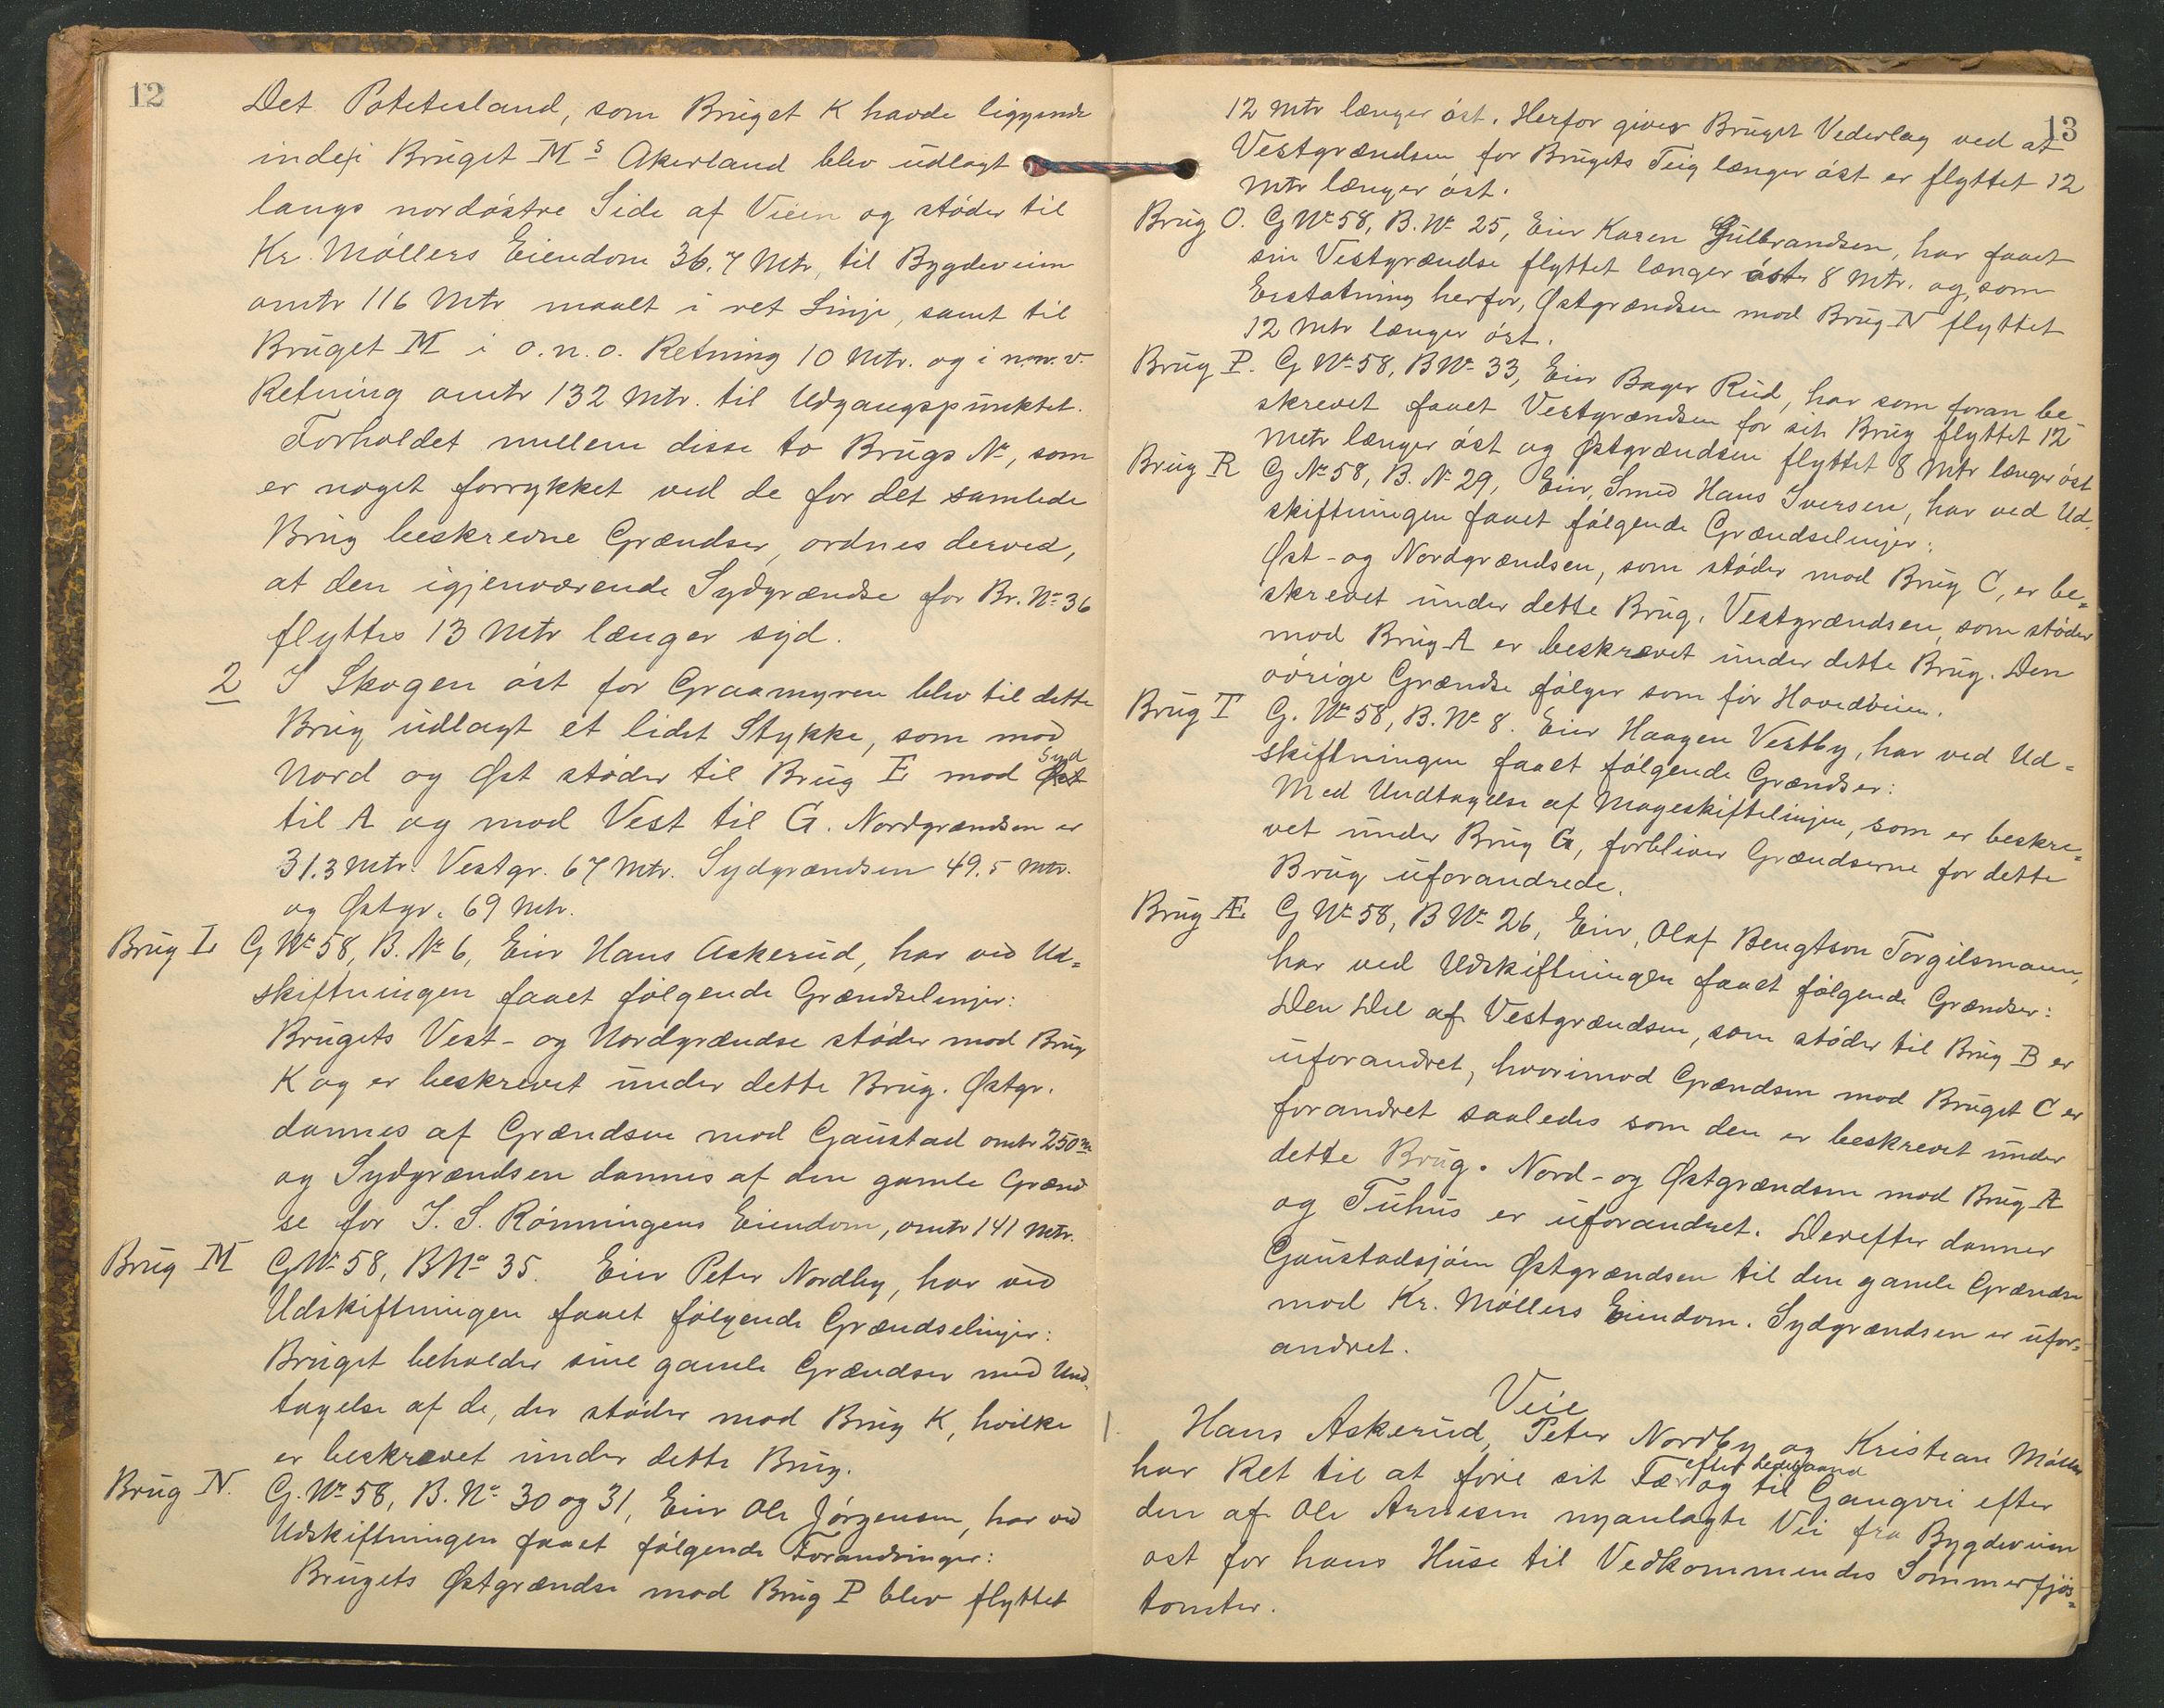 12
Det Potetesland, som Bruget K havde liggende
inde i Bruget Ms Akerland blev udlagt
langs nordøstre Side af Veien og støder til
Kr. Møllers Eiendom 36.7 Mtr, til Bygdeveien
omtr 116 Mtr maalt i ret Linje, samt til
Bruget M i o.n.o. Retning 10 Mtr. og i n.n.v.
Retning omtr 132 Mtr. til Udgangspunktet.
Forholdet mellem disse to Brugs No, som
er noget forrykket ved de for det samlede
Brug beskrevne Grændser, ordnes derved,
at den igjenværende Sydgrændse for Br. No 36
flyttes 13 Mtr længer syd.
2 I Skogen øst for Graamyren blev til dette
Brug udlagt et lidet Stykke, som mod
Nord og Øst støder til Brug E mod Øst Syd
til A og mod Vest til G. Nordgrændsen er
31.3 Mtr. Vestgr. 67 Mtr. Sydgrændsen 49.5 Mtr.
og Østgr. 69 Mtr.
Brug L G No 58, B. No 6, Eier Hans Askerud, har ved Ud=
skiftningen faaet følgende Grændselinjer:
Brugets Vest- og Nordgrændse støder mod Brug
K og er beskrevet under dette Brug. Østgr.
dannes af Grændsen mod Gaustad omtr 250 m
og Sydgrændsen dannes af den gamle Grænd
se for J. S. Rønningens Eiendom, omtr 141 Mtr.
Brug M G No 58, B No 35. Eier Peter Nordby, har ved
Udskiftningen faaet følgende Grændselinjer:
Bruget beholder sine gamle Grændser med Und=
tagelse af de, der støder mod Brug K, hvilke
er beskrevet under dette Brug.
Brug N. G. No 58, B. No 30 og 31, Eier Ole Jørgensen, har ved
Udskiftningen faaet følgende Forandringer:
Brugets Østgrændse mod Brug P blev flyttet
13
12 Mtr længer øst. Herfor giver Bruget Vederlag ved at
Vestgrændsen for Brugets Teig længer øst er flyttet 12
Mtr længer øst.
Brug O. G No 58, B. No 25, Eier Karen Gulbrandsen, har faaet
sin Vestgrændse flyttet længer øster 8 Mtr. og, som
Erstatning herfor, Østgrændsen mod Brug N flyttet
12 Mtr længer øst.
Brug P. G No 58, B No 33, Eier Bager Rud, har som foran be=
skrevet faaet Vestgrændsen for sit Brug flyttet 12
Metr længer øst og Østgrændsen flyttet 8 Mtr længer øst
Brug R G No 58, B. No 29, Eier, Smed Hans Iversen, har ved Ud=
skiftningen faaet følgende Grændselinjer:
Øst- og Nordgrændsen, som støder mod Brug C, er be=
skrevet under dette Brug. Vestgrændsen, som støder
mod Brug A er beskrevet under dette Brug. Den
øvrige Grændse følger som før Hovedveien.
Brug T G. No 58, B. No 8. Eier Haagen Vestby, har ved Ud=
skiftningen faaet følgende Grændser:
Med Undtagelse af Mageskiftelinjen, som er beskre=
vet under Brug G, forbliver Grændserne for dette
Brug uforandrede.
Brug Æ G No 58, B No 26, Eier, Olaf Bengtson Torgilsmoen,
har ved Udskiftningen faaet følgende Grændser:
Den Del af Vestgrændsen, som støder til Brug B er
uforandret, hvorimod Grændsen mod Bruget C er
forandret saaledes som den er beskrevet under
dette Brug. Nord- og Østgrændsen mod Brug A
og Tuhus er uforandret. Derefter danner
Gaustadsjøen Østgrændsen til den gamle Grændse
mod Kr. Møllers Eiendom. Sydgrændsen er ufor=
andret.
Veie
1. Hans Askerud, Peter Nordby og Kristian Møller
har Ret til at føre sit Fæ efter Ledegaand og til Gangvei efter
den af Ole Arnesen nyanlagte Vei fra Bygdeveien
øst for hans Huse til Vedkommendes Sommerfjøs=
tomter.